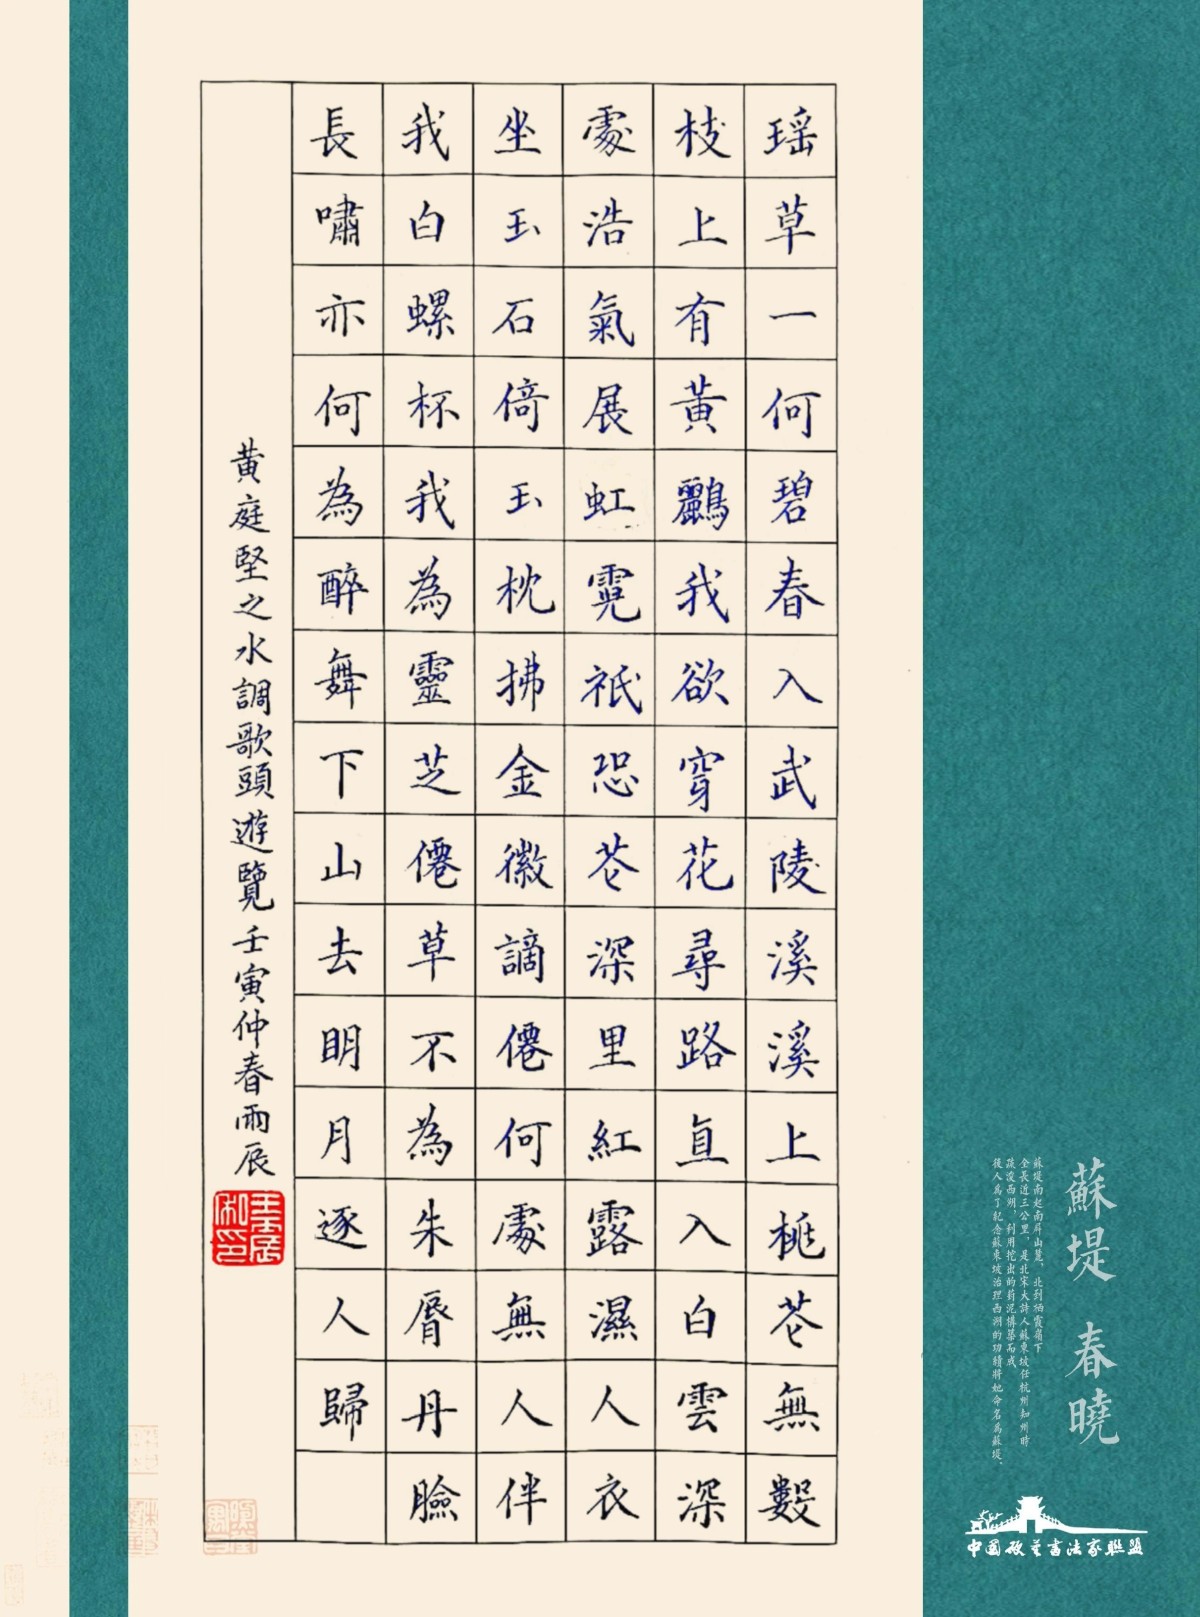 瑶草一何碧春入武陵溪溪上桃花無數
枝上有黃鸝我欲穿花尋路直入白雲深
處浩氣展虹霓祇恐花深里紅露濕人衣
坐玉石倚玉枕拂金徽謫僊何處無人伴
我白螺杯我為靈芝僊草不為朱脣丹臉
長嘯亦何為醉舞下山去明月逐人歸
黃庭堅之水調歌頭遊覽壬寅仲春雨辰
蘇堤 春曉
蘇堤南起南屏山麓，北到栖霞嶺下
全長近三公里，是北宋大詩人蘇東坡任杭州知州時
疏浚西湖，利用挖出的葑泥構築而成
後人為了紀念蘇東坡治理西湖的功績將她命名為蘇堤。
中國硬筆書法家聯盟